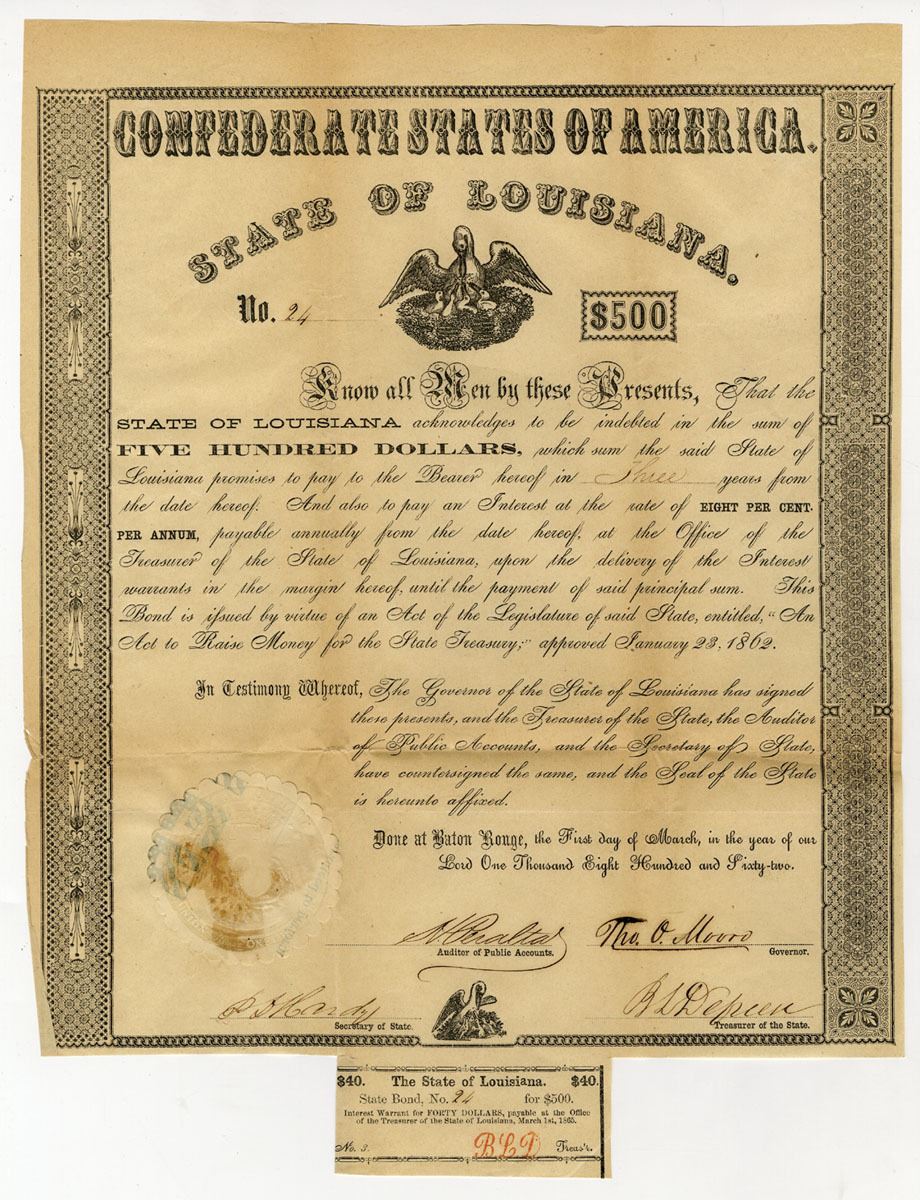 CONFEDERATE STATES OF AMERICA.
STATE OF LOUISIANA.
No. 24
$500
Know all Men by these Presents, That the
STATE OF LOUISIANA acknowledges to be indebted in the sum of
FIVE HUNDRED DOLLARS, which sum the said State of
Louisiana promises to pay to the Bearer hereof in Three years from
the date hereof. And also to pay an Interest at the rate of EIGHT PER CENT.
PER ANNUM, payable annually from the date hereof, at the Office of the
Treasurer of the State of Louisiana, upon the delivery of the Interest
warrants in the margin hereof, until the payment of said principal sum. This
Bond is issued by virtue of an Act of the Legislature of said State, entitled, "An
Act to Raise Money for the State Treasury;" approved January 23, 1862.
In Testimony Whereof, The Governor of the State of Louisiana has signed
these presents, and the Treasurer of the State, the Auditor
of Public Accounts, and the Secretary of State,
have countersigned the same, and the Seal of the State
is hereunto affixed.
Done at Baton Rouge, the First day of March, in the year of our
Lord One Thousand Eight Hundred and Sixty-two.
Tho. O. Moore
Auditor of Public Accounts.
Governor.
Hardy
Secretary of State.
Treasurer of the State.
$40. The State of Louisiana. $40.
State Bond, No. 24 for $500.
Interest Warrant for FORTY DOLLARS, payable at the Office
of the Treasurer of the State of Louisiana, March 1st, 1865.
No. 3. BLD Treas'r.